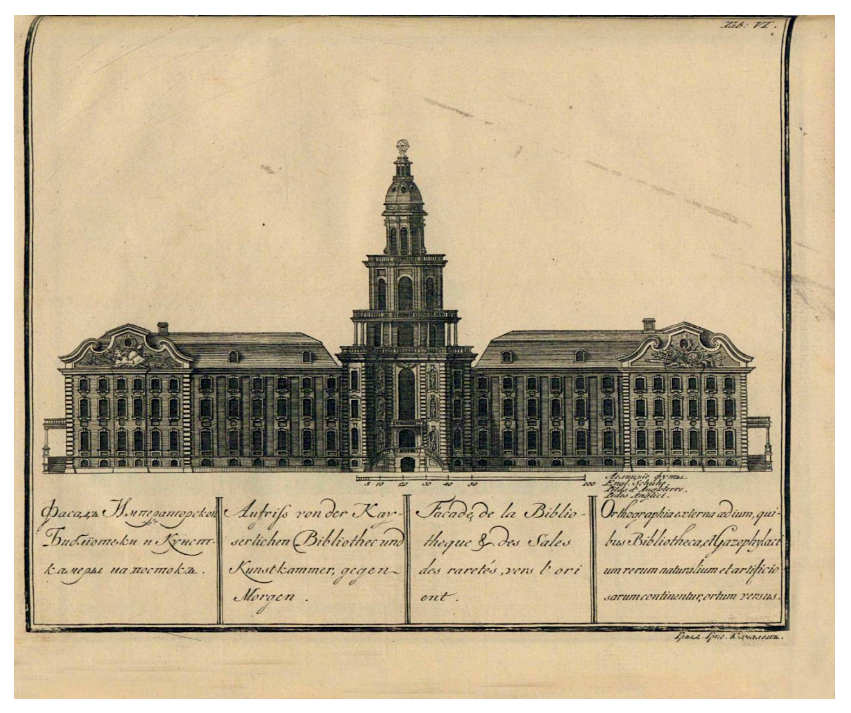 Tab: VI.
5 10 20 30 40 50 100
Аглинские футы.
Engl. Schuhe.
Pieds d'Angleterre.
Pedes Anglici.
Фасадъ Императорской
Библїотеки и Кунст-
камеры на востокъ.
Aufriss von der Kay-
serlichen Bibliothec und
Kunstkammer, gegen
Morgen.
Façade, de la Biblio-
theque & des Sales
des raretés, vers l'ori
ent.
Orthographia externa ædium, qui-
bus Bibliotheca, et Gazophylaci
um rerum naturalium et artificio
sarum continentur, ortum versus.
Грыд. Григ. Качаловъ.